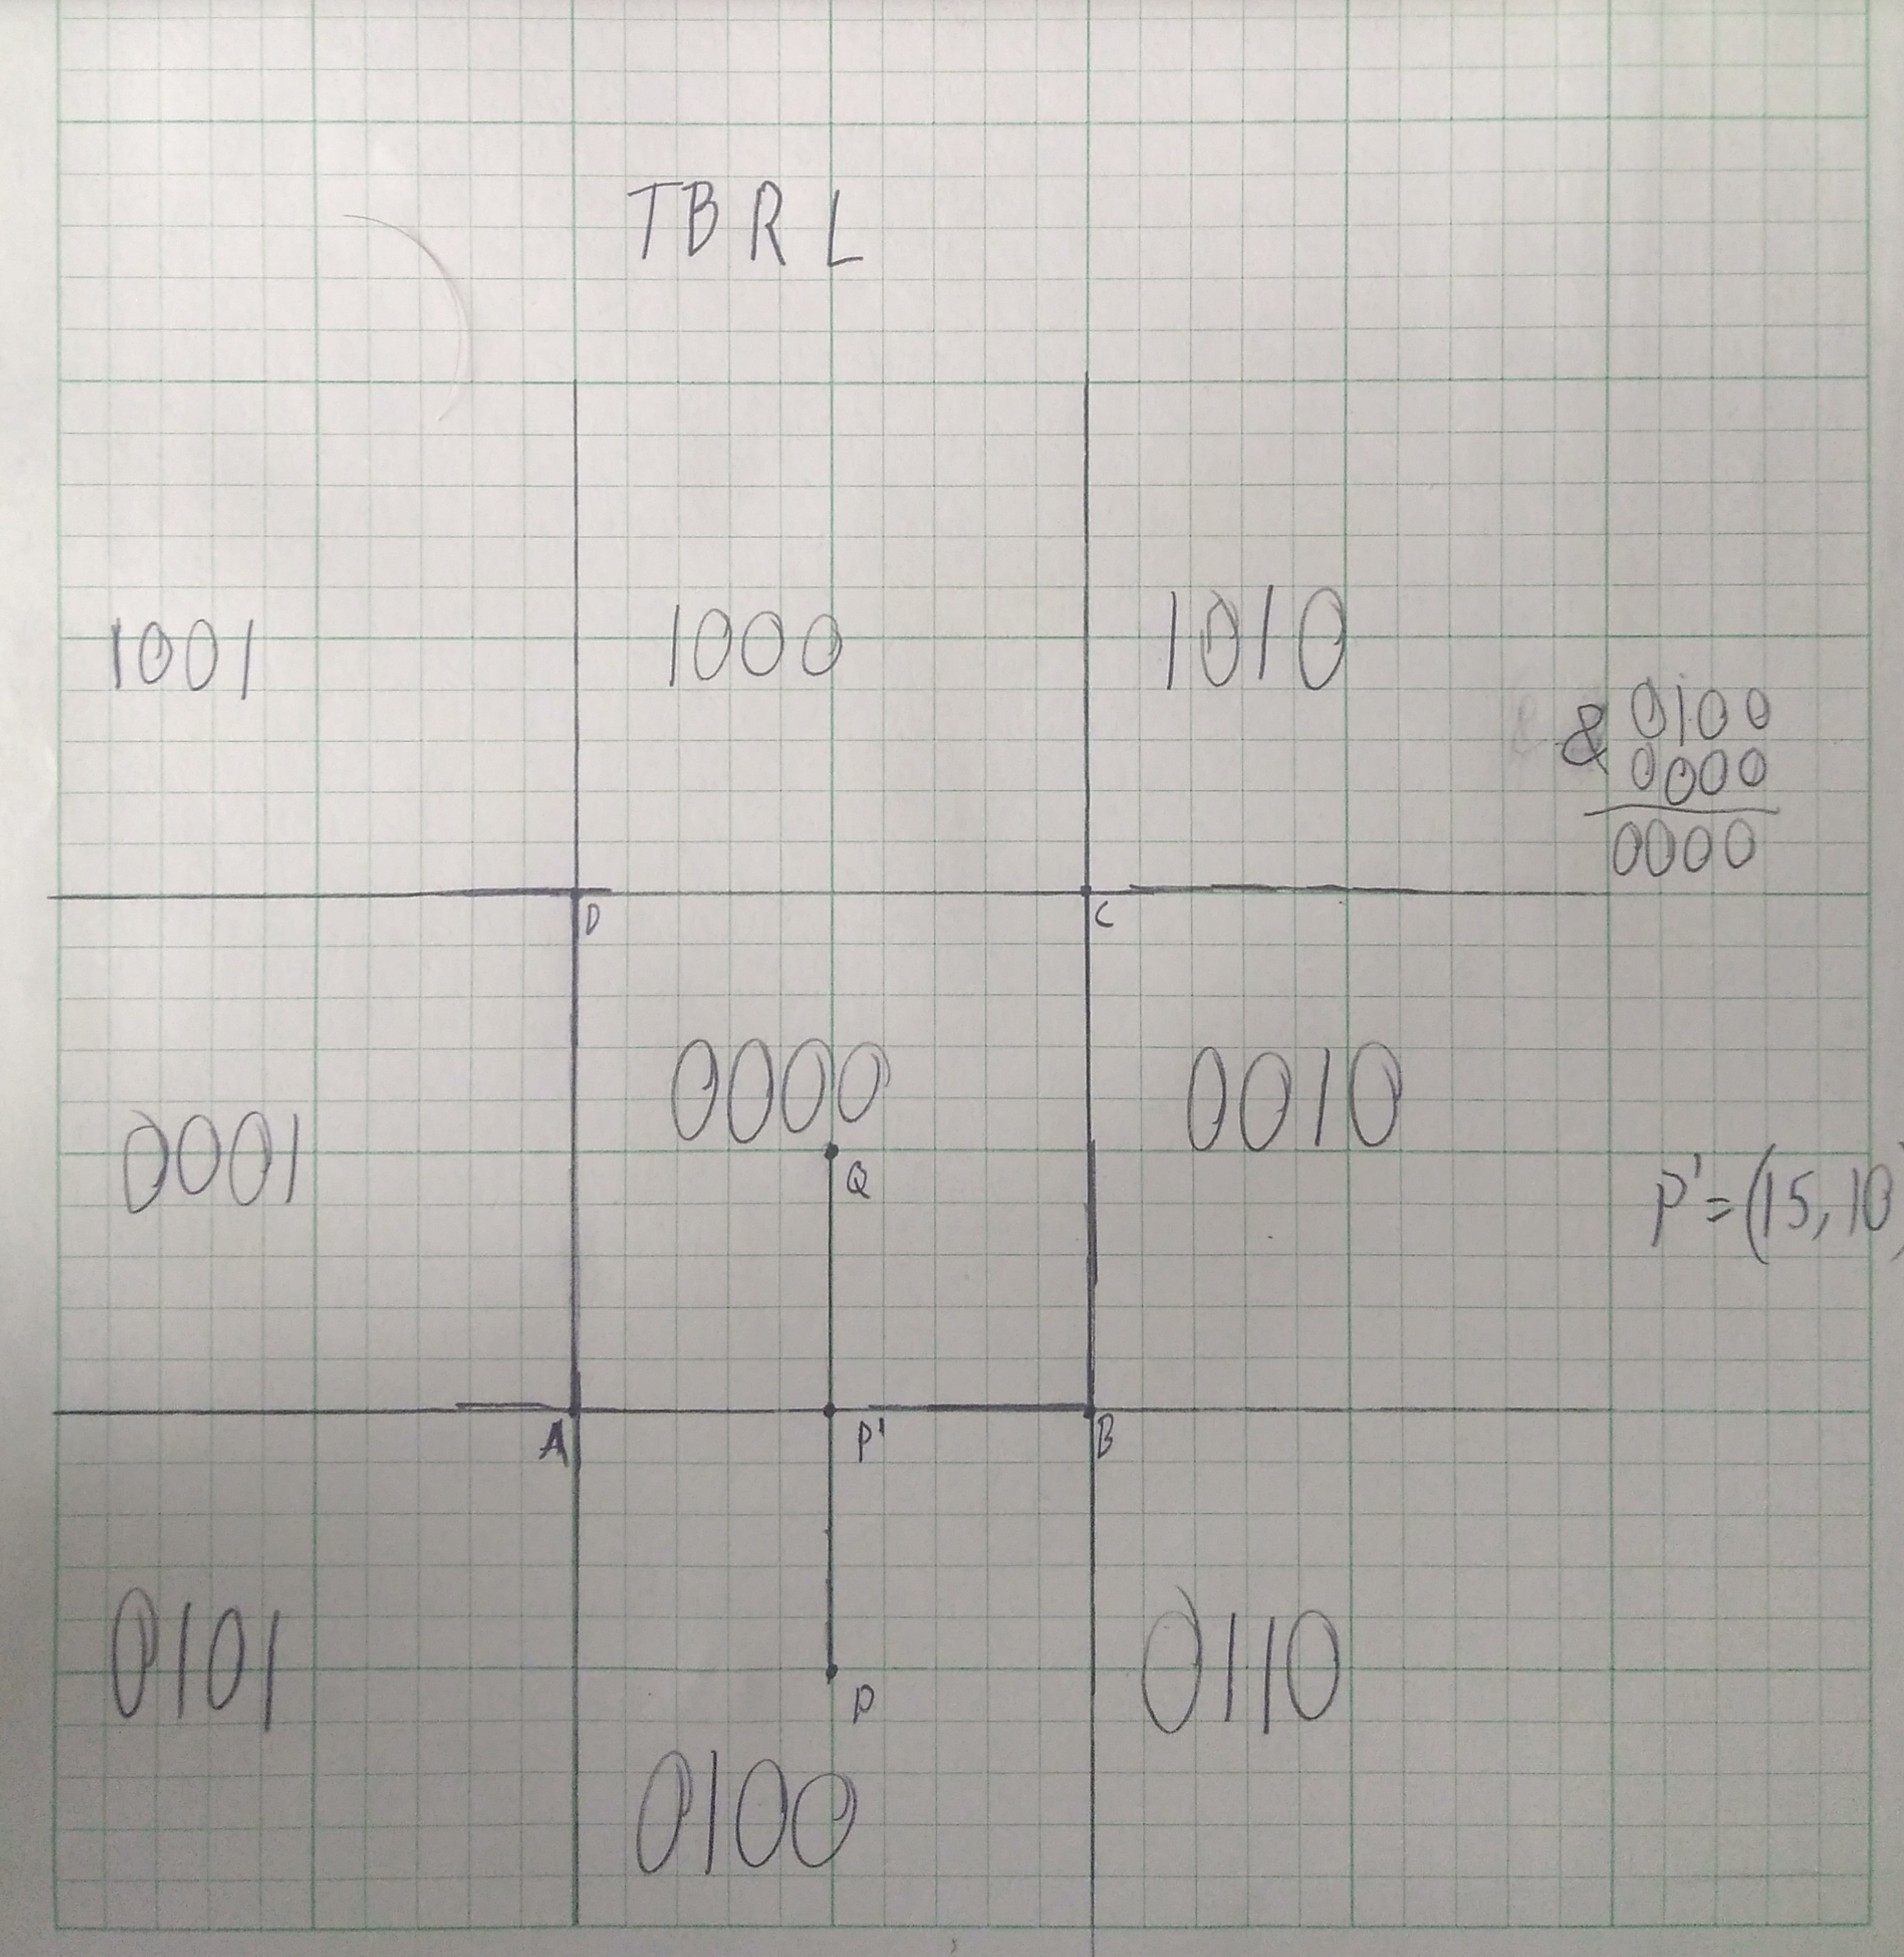 TBRL
1001 1000 1010
& 0100
0000
0000
D C
0000 0010
0001
Q
P'=(15,10)
A P' B
0101 0110
P
0100